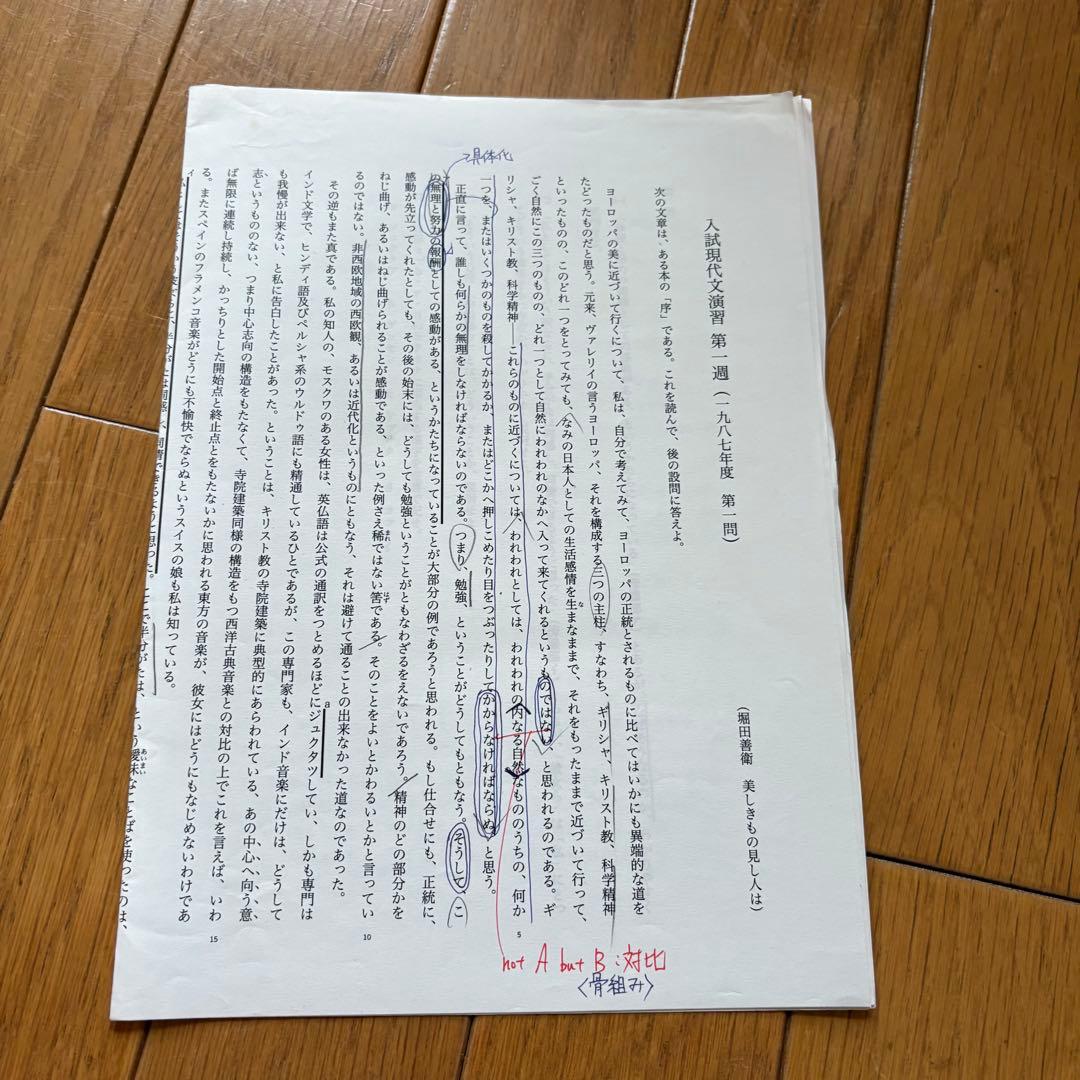 入試現代文演習 第一週(一九八七年度 第一問)
(堀田善衛 美しきもの見し人は)
次の文章は、ある本の「序」である。これを読んで、後の設問に答えよ。
ヨーロッパの美に近づいて行くについて、私は、自分で考えてみて、ヨーロッパの正統とされるものに比べてはいかにも異端的な道を
たどったものだと思う。元来、ヴァレリイの言うヨーロッパ、それを構成する三つの主柱、すなわち、ギリシャ、キリスト教、科学精神
といったものの、このどれ一つをとってみても、なみの日本人としての生活感情を生まなままで、それをもったままで近づいて行って、
な
ごく自然にこの三つのものの、どれ一つとして自然にわれわれのなかへ入って来てくれるというものではない、と思われるのである。ギ
リシャ、キリスト教、科学精神――これらのものに近づくについては、われわれとしては、われわれの内なる自然なもののうちの、何か
5
一つを、またはいくつかのものを殺してかかるか、またはどこかへ押しこめたり目をつぶったりしてかからなければならぬ、と思う。
正直に言って、誰しも何らかの無理をしなければならないのである。つまり、勉強、ということがどうしてもともなう。そうして、こ
の無理と努力の報酬としての感動がある、というかたちになっていることが大部分の例であろうと思われる。もし仕合せにも、正統に、
感動が先立ってくれたとしても、その後の始末には、どうしても勉強ということがともなわざるをえないであろう。精神のどの部分かを
ねじ曲げ、あるいはねじ曲げられることが感動である、といった例さえ稀ではない筈である。そのことをよいとかわるいとかと言ってい
まれ
はず
るのではない。非西欧地域の西欧観、あるいは近代化というものにともなう、それは避けて通ることの出来なかった道なのであった。
10
その逆もまた真である。私の知人の、モスクワのある女性は、英仏語は公式の通訳をつとめるほどにジュクタツしてい、しかも専門は
a
インド文学で、ヒンディ語及びペルシャ系のウルドゥ語にも精通しているひとであるが、この専門家も、インド音楽にだけは、どうして
も我慢が出来ない、と私に告白したことがあった。ということは、キリスト教の寺院建築に典型的にあらわれている、あの中心へ向う意
志というもののない、つまり中心志向の構造をもたなくて、寺院建築同様の構造をもつ西洋古典音楽との対比の上でこれを言えば、いわ
ば無限に連続し持続し、かっちりとした開始点と終止点とをもたないかに思われる東方の音楽が、彼女にはどうにもなじめないわけであ
15
る。またスペインのフラメンコ音楽がどうにも不愉快でならぬというスイスの娘も私は知っている。
ように思った。ここで半分がたは、という曖昧なことばを使ったのは、
あいまい
具体化
not A but B:対比
〈骨組み〉